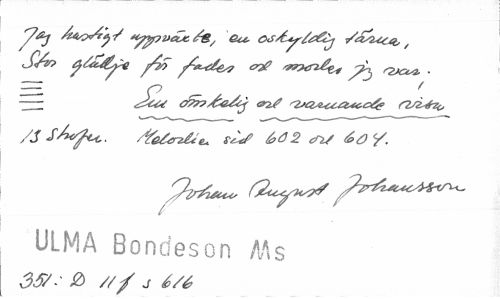 Jag hastigt uppväxte, en oskyldig tärna,
Stor glädje för fader och moder jg var.
En ömkelig och varnande visa
13 Strofer. Melodier sid 602 och 604.
Johan August Johansson
ULMA Bondeson Ms
351: D 11 f s 616